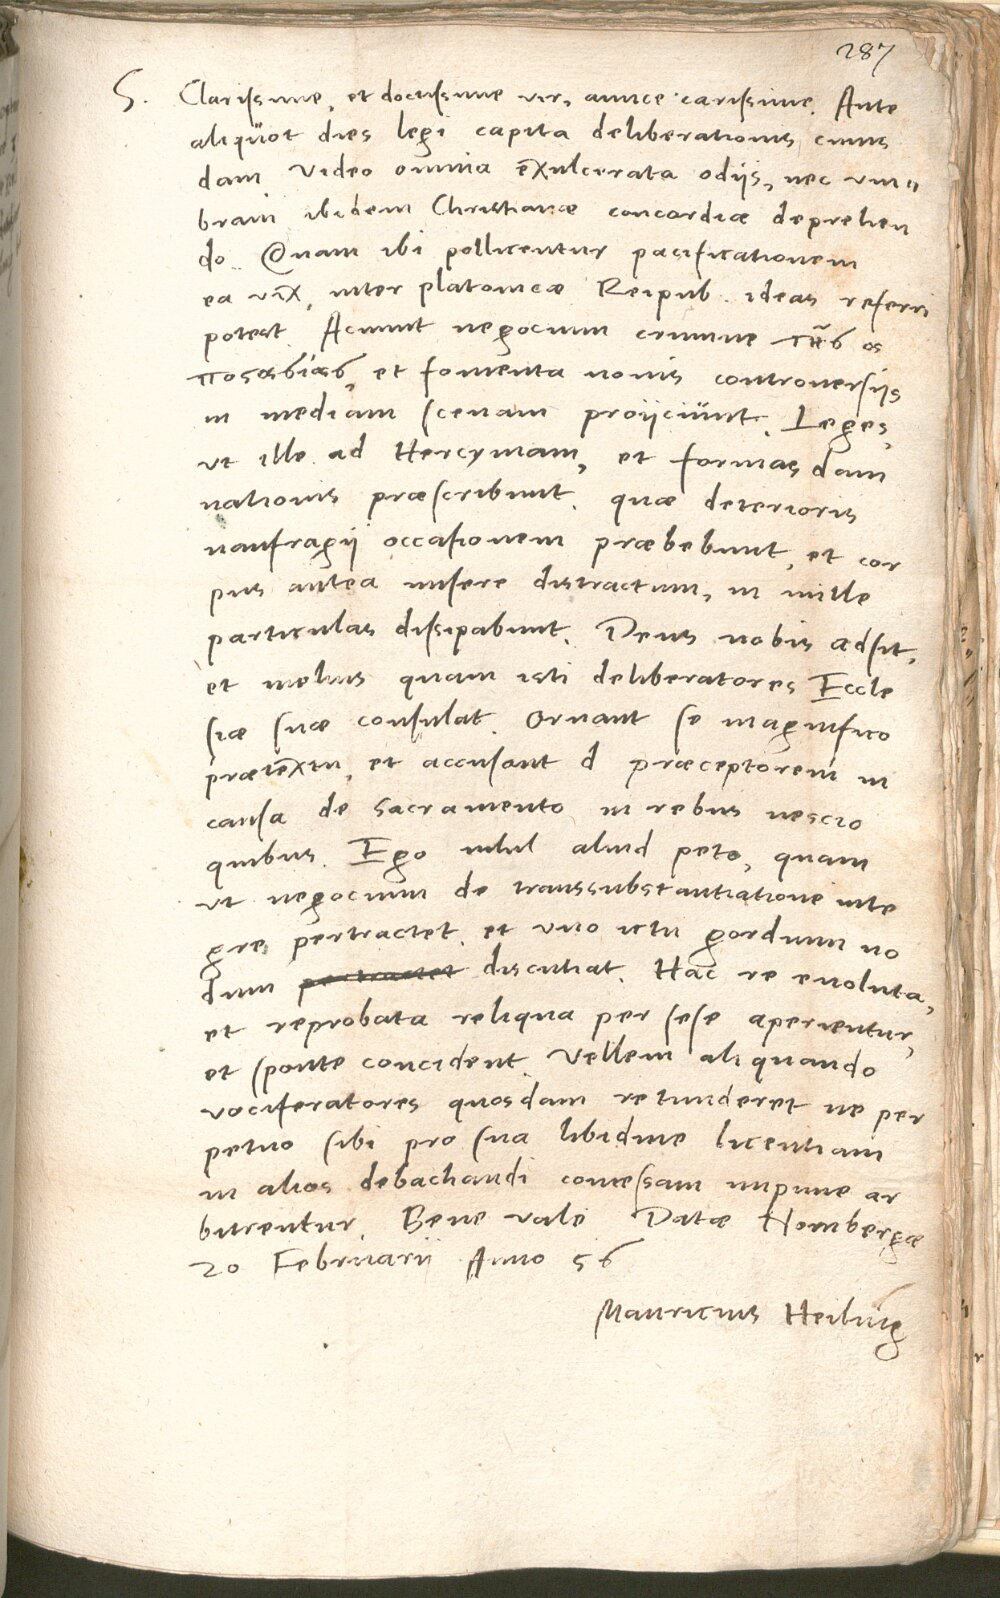 287
S. Clarissime, et doctissime vir, amice carissime. Ante
aliquot dies legi capita deliberationis cuius
dam. Video omnia exulcerata odiis, nec um„
bram ibidem Christianæ concordiæ deprehen
do.. Quam ibi pollicentur pacificationem
ea vix, inter platonicæ Reipub. ideas referri
potest. Acuunt negocium crimine
et fomenta nouis controuersiis
in mediam scenam proijciunt. Leges,
ut ille ad Hercyniam, et formas dam
nationis præscribunt, quæ deterioris
naufragij occasionem præbebunt, et cor
pus antea misere distractum, in mille
particulas dissipabunt. Deus nobis adsit,
et melius quam isti deliberatores Eccle
siæ suæ consulat. Ornant se magnifico
prætextu, et accusant d præceptorem in
causa de sacramento in rebus nescio
quibus. Ego nihil aliud peto, quam
ut negocium de transsubstantiatione inte
gre pertractet, et uno ictu gordium no
dum pertractet discutiat. Hac re euoluta,
et reprobata reliqua per sese aperientur,
et sponte concident. Vellem aliquando
vociferatores quosdam retunderet ne per
petuo sibi pro sua libidine licentiam
in alios debachandi concessam impune ar
bitrentur. Bene vale Datæ Nombergæ
20 Februarii Anno 56
Mauricius Heiling